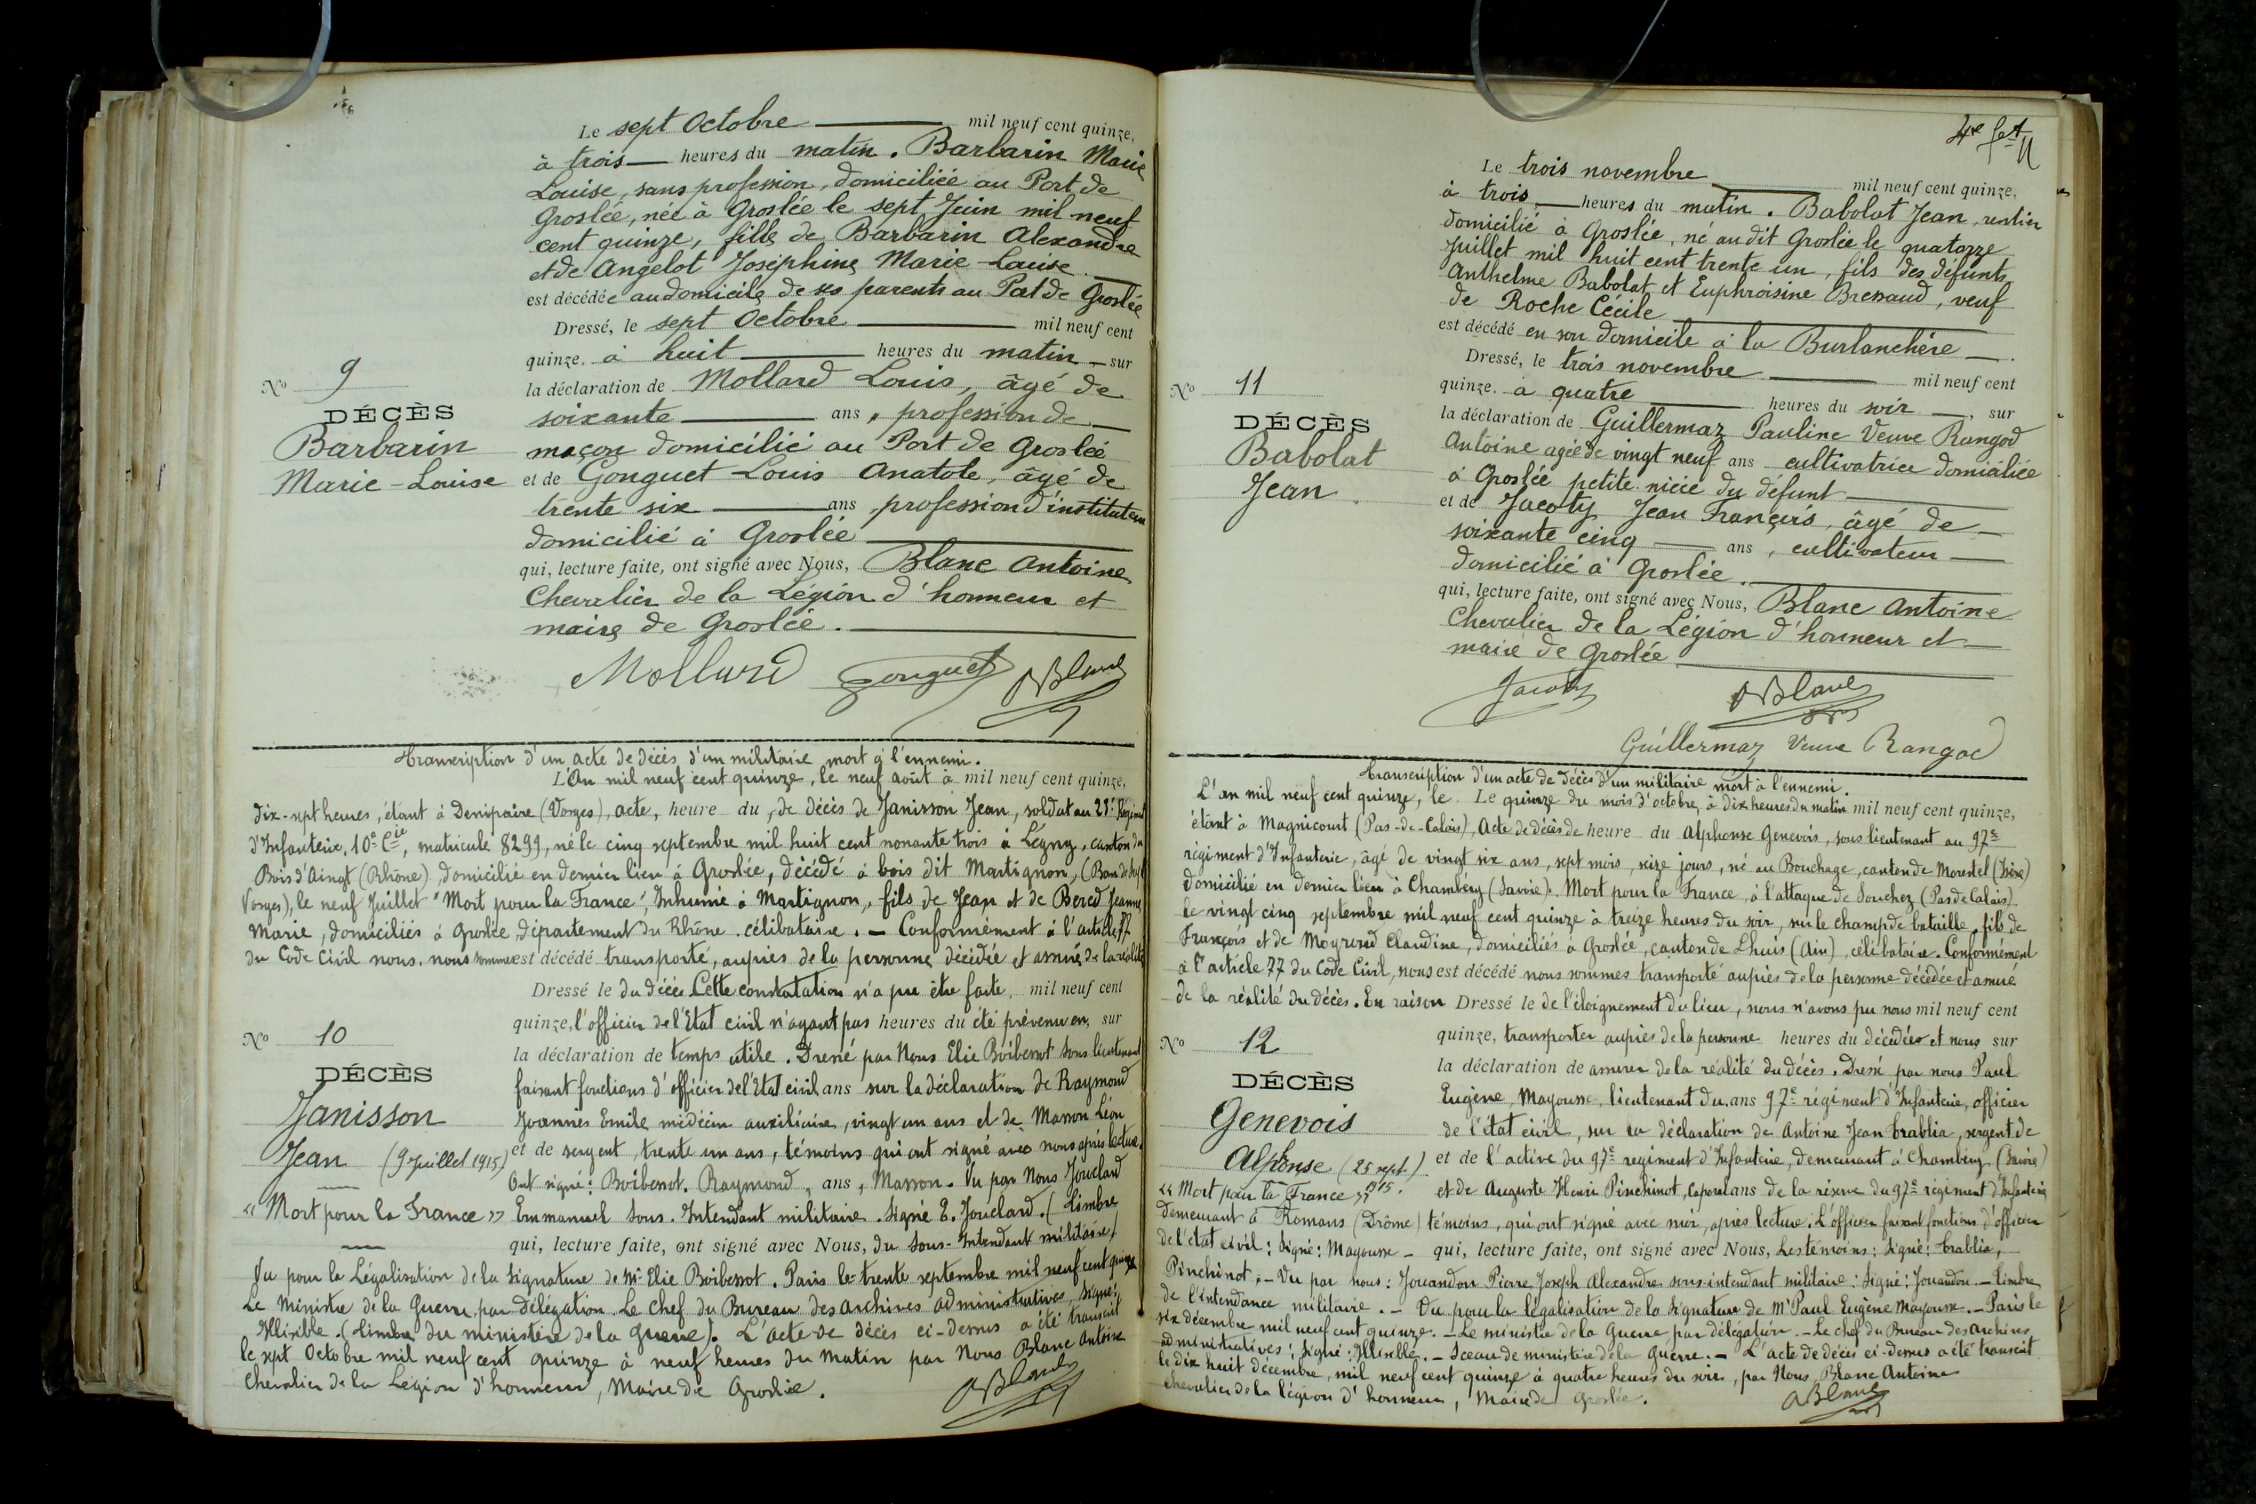 Le sept Octobre mil neuf cent quinze,
à trois heures du matin. Barbarin Marie
Louise, sans profession, domiciliée au Port de
Groslée, née à Groslée le sept Juin mil neuf
cent quinze, fille de Barbarin Alexandre
et de Angelot Joséphine Marie-Louise.
est décédée au domicile de ses parents au Port de Groslée
Dressé, le sept Octobre mil neuf cent
quinze. à huit heures du matin sur
la déclaration de Mollard Louis, âgé de
soixante ans, profession de
maçon domicilié au Port de Groslée
et de Gonguet Louis Anatole, âgé de
trente six ans, profession d'instituteur
domicilié à Groslée
qui, lecture faite, ont signé avec Nous, Blanc Antoine
Chevalier de la Légion d'honneur et
maire de Groslée.
Mollard Gonguet ABlanc
No 9
DÉCÈS
Barbarin
Marie-Louise
Transcription d'un acte de décès d'un militaire mort à l'ennemi.
L'An mil neuf cent quinze, le neuf août à mil neuf cent quinze,
dix-sept heures, étant à Denipaire (Vosges), acte, heure du, de décès de Janisson Jean, soldat au 23e Régiment
d'Infanterie, 10e Cie, matricule 8299, né le cinq septembre mil huit cent nonante trois à Légny, canton du
Bois d'Oingt (Rhône) domicilié en dernier lieu à Groslée, décédé à bois dit Martignon, (Ban de
Vosges), le neuf Juillet "Mort pour la France", Inhumé à Martignon, fils de Jean et de Bered Jeanne
Marie, domiciliés à Groslée, département du Rhône. célibataire. - Conformément à l'article 77
du Code Civil nous. nous sommes est décédé transporté, auprès de la personne décédée et assuré de la réalité
Dressé le du décès Cette constatation n'a pu être faite, mil neuf cent
quinze, l'officier de l'Etat civil n'ayant pas heures du été prévenu en, sur
la déclaration de temps utile. Dressé par Nous Elie Boibessot sous lieutenant
faisant fonctions d'officier de l'Etat civil ans sur la déclaration de Raymond
Joannès Emile médecin auxiliaire, vingt un ans et de Masson Léon
et de sergent, trente un ans, témoins qui ont signé avec nous après lecture.
Ont signé: Boibessot. Raymond, ans, Masson. Vu par Nous Jouclard
Emmanuel Sous-Intendant militaire. Signé E. Jouclard. (Timbre
qui, lecture faite, ont signé avec Nous, du Sous-Intendant militaire)
Vu pour la Légalisation de la signature de Mr Elie Boibessot. Paris le trente septembre mil neuf cent quinze
Le Ministre de la Guerre, par délégation. Le chef du Bureau des archives administratives, signé:
Illisible. (timbre du ministère de la guerre). L'acte de décès ci-dessus a été transcrit
le sept Octobre mil neuf cent quinze à neuf heures du matin par Nous Blanc Antoine
Chevalier de la Légion d'honneur, Maire de Groslée.
ABlanc
No 10
DÉCÈS
Janisson
Jean (9 Juillet 1915)
"Mort pour la France"
Le trois novembre mil neuf cent quinze.
à trois heures du matin. Babolat Jean, rentier
domicilié à Groslée, né au dit Groslée le quatorze
Juillet mil huit cent trente un, fils des défunts
Anthelme Babolat et Euphroisine Bressaud, veuf
de Roche Cécile
est décédé en son domicile à la Burlanchère
Dressé, le trois novembre mil neuf cent
quinze. à quatre heures du soir, sur
la déclaration de Guillermaz Pauline Veuve Rangod
Antoine agée de vingt neuf ans cultivatrice domiciliée
à Groslée petite nièce du défunt
et de Jacoty Jean François, âgé de
soixante cinq ans, cultivateur
domicilié à Groslée.
qui, lecture faite, ont signé avec Nous, Blanc Antoine
Chevalier de la Légion d'honneur et
maire de Groslée
Jacoty ABlanc
Guillermaz Veuve Rangod
No 11
DÉCÈS
Babolat
Jean
Transcription d'un acte de décès d'un militaire mort à l'ennemi.
L'an mil neuf cent quinze, le Le quinze du mois d'octobre, à dix heures du matin mil neuf cent quinze,
étant à Magnicourt (Pas-de-Calais), Acte de décès de heure du Alphonse Genevois, sous lieutenant au 97e
régiment d'Infanterie, âgé de vingt six ans, sept mois, seize jours, né au Bouchage, canton de Morestel (Isère)
domicilié en dernier lieu à Chambéry (Savoie). Mort pour la France, à l'attaque de Souchez (Pas de Calais)
le vingt cinq septembre mil neuf cent quinze à treize heures du soir, sur le champ de bataille, fils de
François et de Moyroud Claudine, domiciliés à Groslée, canton de Lhuis (Ain), célibataire. Conformément
à l'article 77 du Code Civil, nous est décédé nous sommes transporté auprès de la personne décédée et assuré
de la réalité du décès. En raison Dressé le de l'éloignement du lieu, nous n'avons pu nous mil neuf cent
quinze, transporter auprès de la personne heures du décédée et nous sur
la déclaration de assurer de la réalité du décès. Dressé par nous Paul
Eugène Mayousse, lieutenant du, ans 97e régiment d'Infanterie, officier
de l'état civil, sur la déclaration de Antoine Jean Crablia, sergent de
et de l'active du 97e régiment d'Infanterie, demeurant à Chambéry (Savoie)
et de Auguste Henri Pinchinot, Caporal ans de la réserve du 97e régiment d'Infanterie
demeurant à Romans (Drôme) témoins, qui ont signé avec moi, après lecture. L'officier faisant fonctions d'officier
de l'état civil: Signé: Mayousse - qui, lecture faite, ont signé avec Nous, Les témoins: Signé: Crablia,
Pinchinot; - Vu par nous: Jouandon Pierre Joseph Alexandre sous-intendant militaire: Signé: Jouandon. - timbre
de l'intendance militaire. - Vu pour la légalisation de la signature de Mr Paul Eugène Mayousse. - Paris le
six décembre mil neuf cent quinze. - Le ministre de la Guerre par délégation. - Le chef du Bureau des archives
administratives; signé: Illisible. - Sceau de ministère de la Guerre. - L'acte de décès ci-dessus a été transcrit
le dix huit décembre, mil neuf cent quinze à quatre heures du soir, par Nous, Blanc Antoine
Chevalier de la légion d'honneur, Maire de Groslée.
ABlanc
No 12
DÉCÈS
Genevois
Alphonse (25 sept. 1915.)
"Mort pour la France"